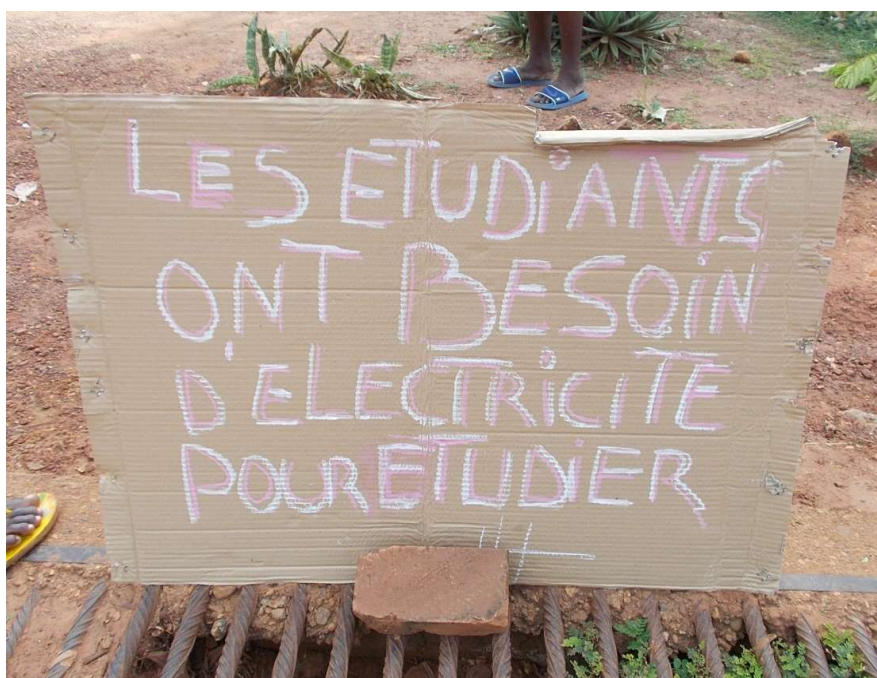 LES ETUDiANTS
ONT BESOiN
D'ELECTRiCITE
POUR ETUDiER